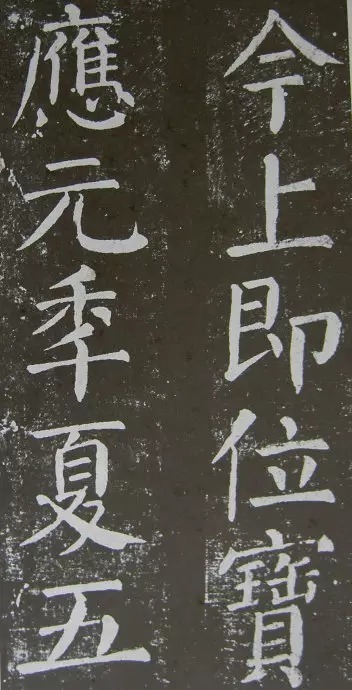 今上即位寶
應元秊夏五